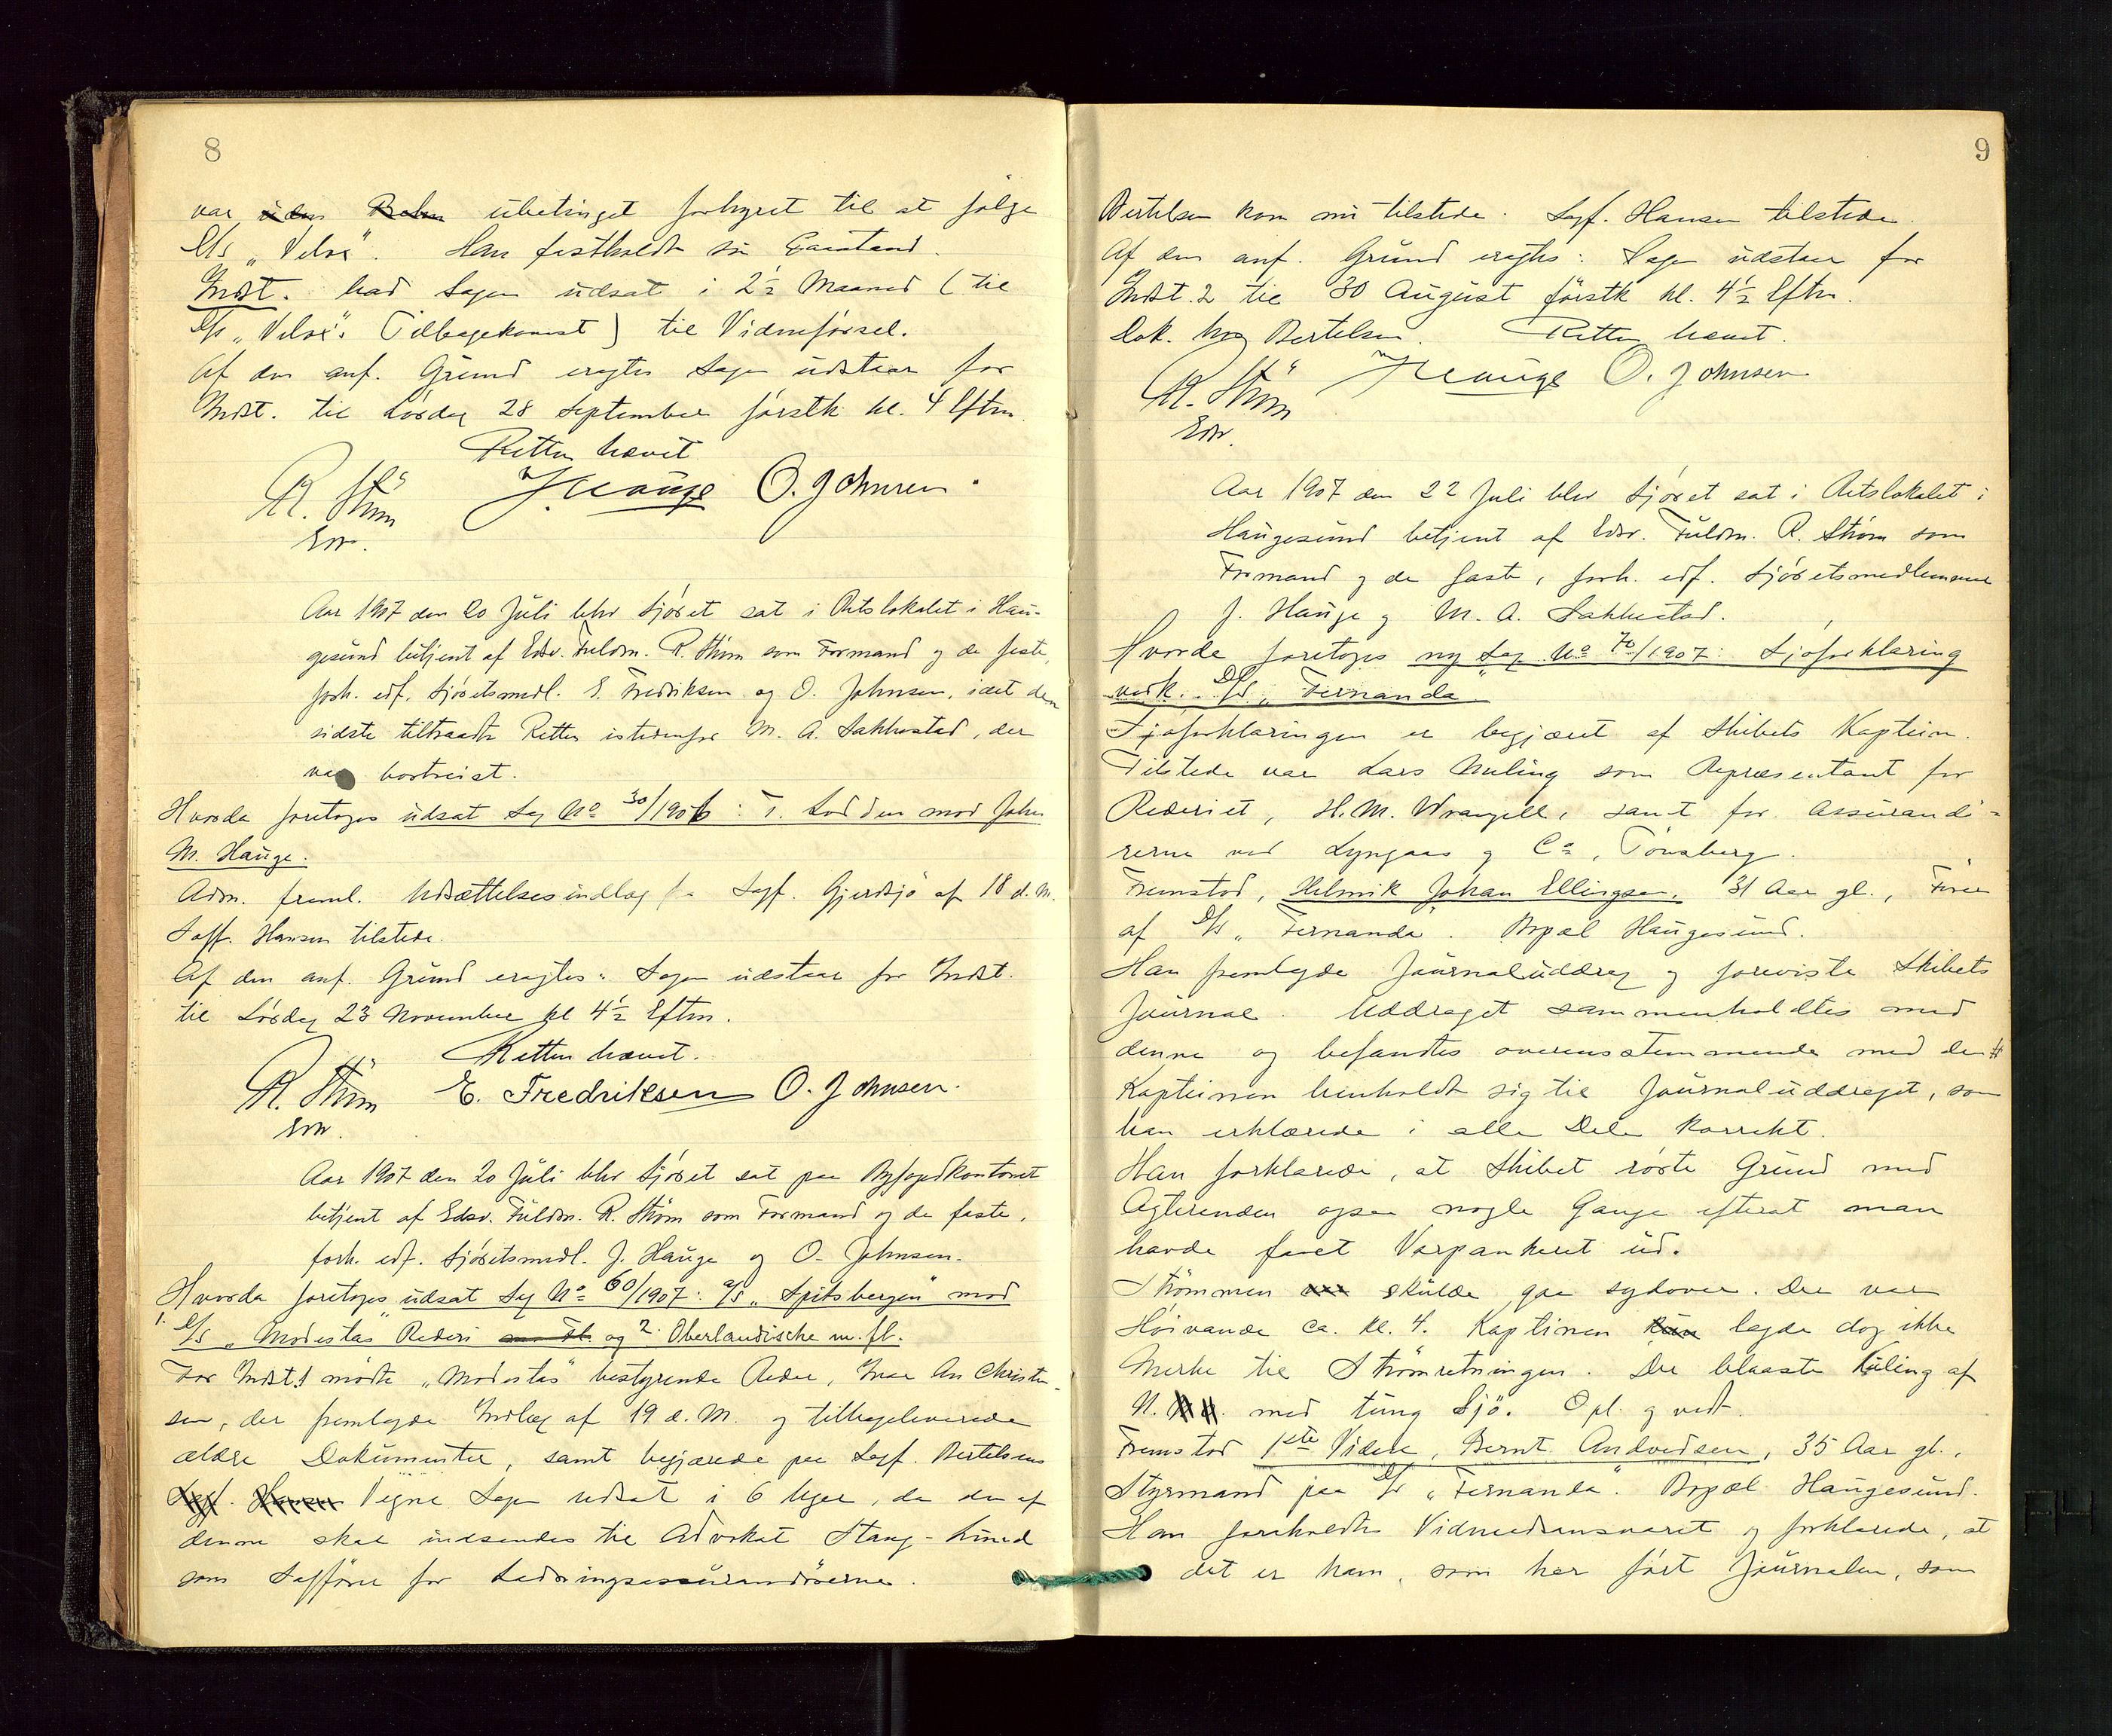 8
var uden ubetinget forhyret til at følge
D/s „Velox". Han fastholdt sin Paastand.
Indst. bad Sagen udsat i 2½ Maaned (til
D/s „Velox"s Tilbagekomst) til Vidneførsel.
Af den anf. Grund eragtes Sagen udstaar for
Indst. til Lørdag 28 September førstk. kl. 4 Eftm.
Retten hævet
R. Strøm J Hauge O. Johnsen.
Edsv.
Aar 1907 den 20 Juli blev Sjøret sat i Retslokalet i Hau-
gesund betjent af Edsv. Fuldm. R. Strøm som Formand og de faste,
forh. edf. Sjøretsmedl. E. Fredriksen og O. Johnsen, idet den
sidste tiltraadte Retten istedenfor M. A. Sakkestad, der
var bortreist.
Hvorda foretoges udsat Sag No 30/1906: T. Lodden mod John
M. Hauge.
Adm. freml. Udsættelsesindlæg fra Sagf. Gjerdsjø af 18 d. M.
Sagf. Hansen tilstede.
Af den anf. Grund eragtes: Sagen udstaar for Indst.
til Lørdag 23 November kl 4½ Eftm.
Retten hævet.
R. Strøm E. Fredriksen O. Johnsen.
Edsv.
Aar 1907 den 20 Juli blev Sjøret sat paa Byfogedkontoret
betjent af Edsv. Fuldm. R. Strøm som Formand og de faste,
forh. edf. Sjøretsmedl. J. Hauge og O. Johnsen.
Hvorda foretoges udsat Sag No 60/1907: A/S „Spitsbergen" mod
1. D/s „Modesta"s Rederi og 2. Oberlandische m. fl.
For Indst. 1 mødte „Modesta"s bestyrende Reder, Christen-
sen, der fremlagde Indlæg af 19 d. M. og tilbageleverede
ældre Dokumenter, samt begjærede paa Sagf. Bertelsens
Sagf. Hansen Vegne Sagen udsat i 6 Uger, da den af
denne skal indsendes til Advokat Stang-Lund
som Sagfører for Ladningsassurandørerne.
9
Bertelsen kom nu tilstede. Sagf. Hansen tilstede.
Af den anf. Grund eragtes: Sagen udstaar for
Indst. 2 til 30 August førstk kl. 4½ Eftm.
Dok. hos Bertelsen. Retten hævet.
R. Strøm J Hauge O. Johnsen
Edsv.
Aar 1907 den 22 Juli blev Sjøret sat i Retslokalet i
Haugesund betjent af Edsv. Fuldm. R. Strøm som
Formand og de faste, forh. edf. Sjøretsmedlemmer
J. Hauge og M. A. Sakkestad.
Hvorda foretoges ny Sag No 70/1907: Sjøforklaring
vedk. D/s „Fernanda"
Sjøforklaringen er begjæret af Skibets Kaptein.
Tilstede var Lars Meling som Repræsentant for
Rederiet, H. M. Wrangell, samt for Assurandø-
rerne ved Lyngaas og Co, Tønsberg.
Fremstod, Helmik Johan Ellingsen, 31 Aar gl., Fører
af D/s „Fernanda". Bopæl Haugesund.
Han fremlagde Journaluddrag og foreviste Skibets
Journal. Uddraget sammenholdtes med
denne og befandtes overensstemmende med den
Kapteinen henholdt sig til Journaluddraget, som
han erklærede i alle Dele korrekt.
Han forklarede, at Skibet rørte Grund med
Agterenden ogsaa nogle Gange efterat man
havde faaet Varpankeret ud.
Strømmen skulde gaa sydover. Der var
Høivande ca. kl. 4. Kapteinen lagde dog ikke
Merke til Strømretningen. Der blaaste Kuling af
N. med tung Sjø. Opl. og vedt.
Fremstod 1ste Vidne, Bernt Andvedsen, 35 Aar gl.,
Styrmand paa D/s „Fernanda". Bopæl Haugesund.
Han foreholdtes Vidneedsansvaret og forklarede, at
det er ham, som har ført Journalen, som